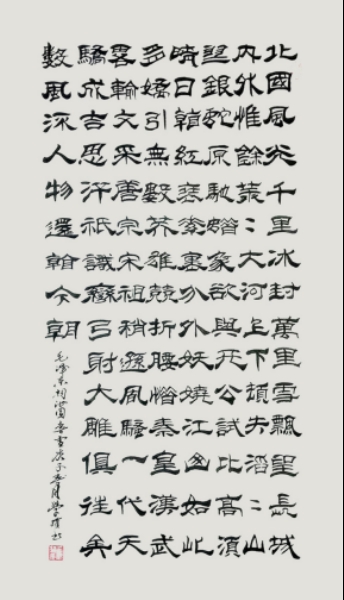 北國風光千里冰封萬里雪飄望長城
内外惟餘莽〻大河上下頓失滔〻山
舞銀蛇原馳蜡象欲與天公試比高須
晴日看紅裝素裹分外妖嬈江山如此
多嬌引無數英雄競折腰惜秦皇漢武
略輸文采唐宗宋祖稍遜風騷一代天
驕成吉思汗祇識彎弓射大雕俱往矣
數風流人物還看今朝
毛澤東詞沁園春雪庚子春月